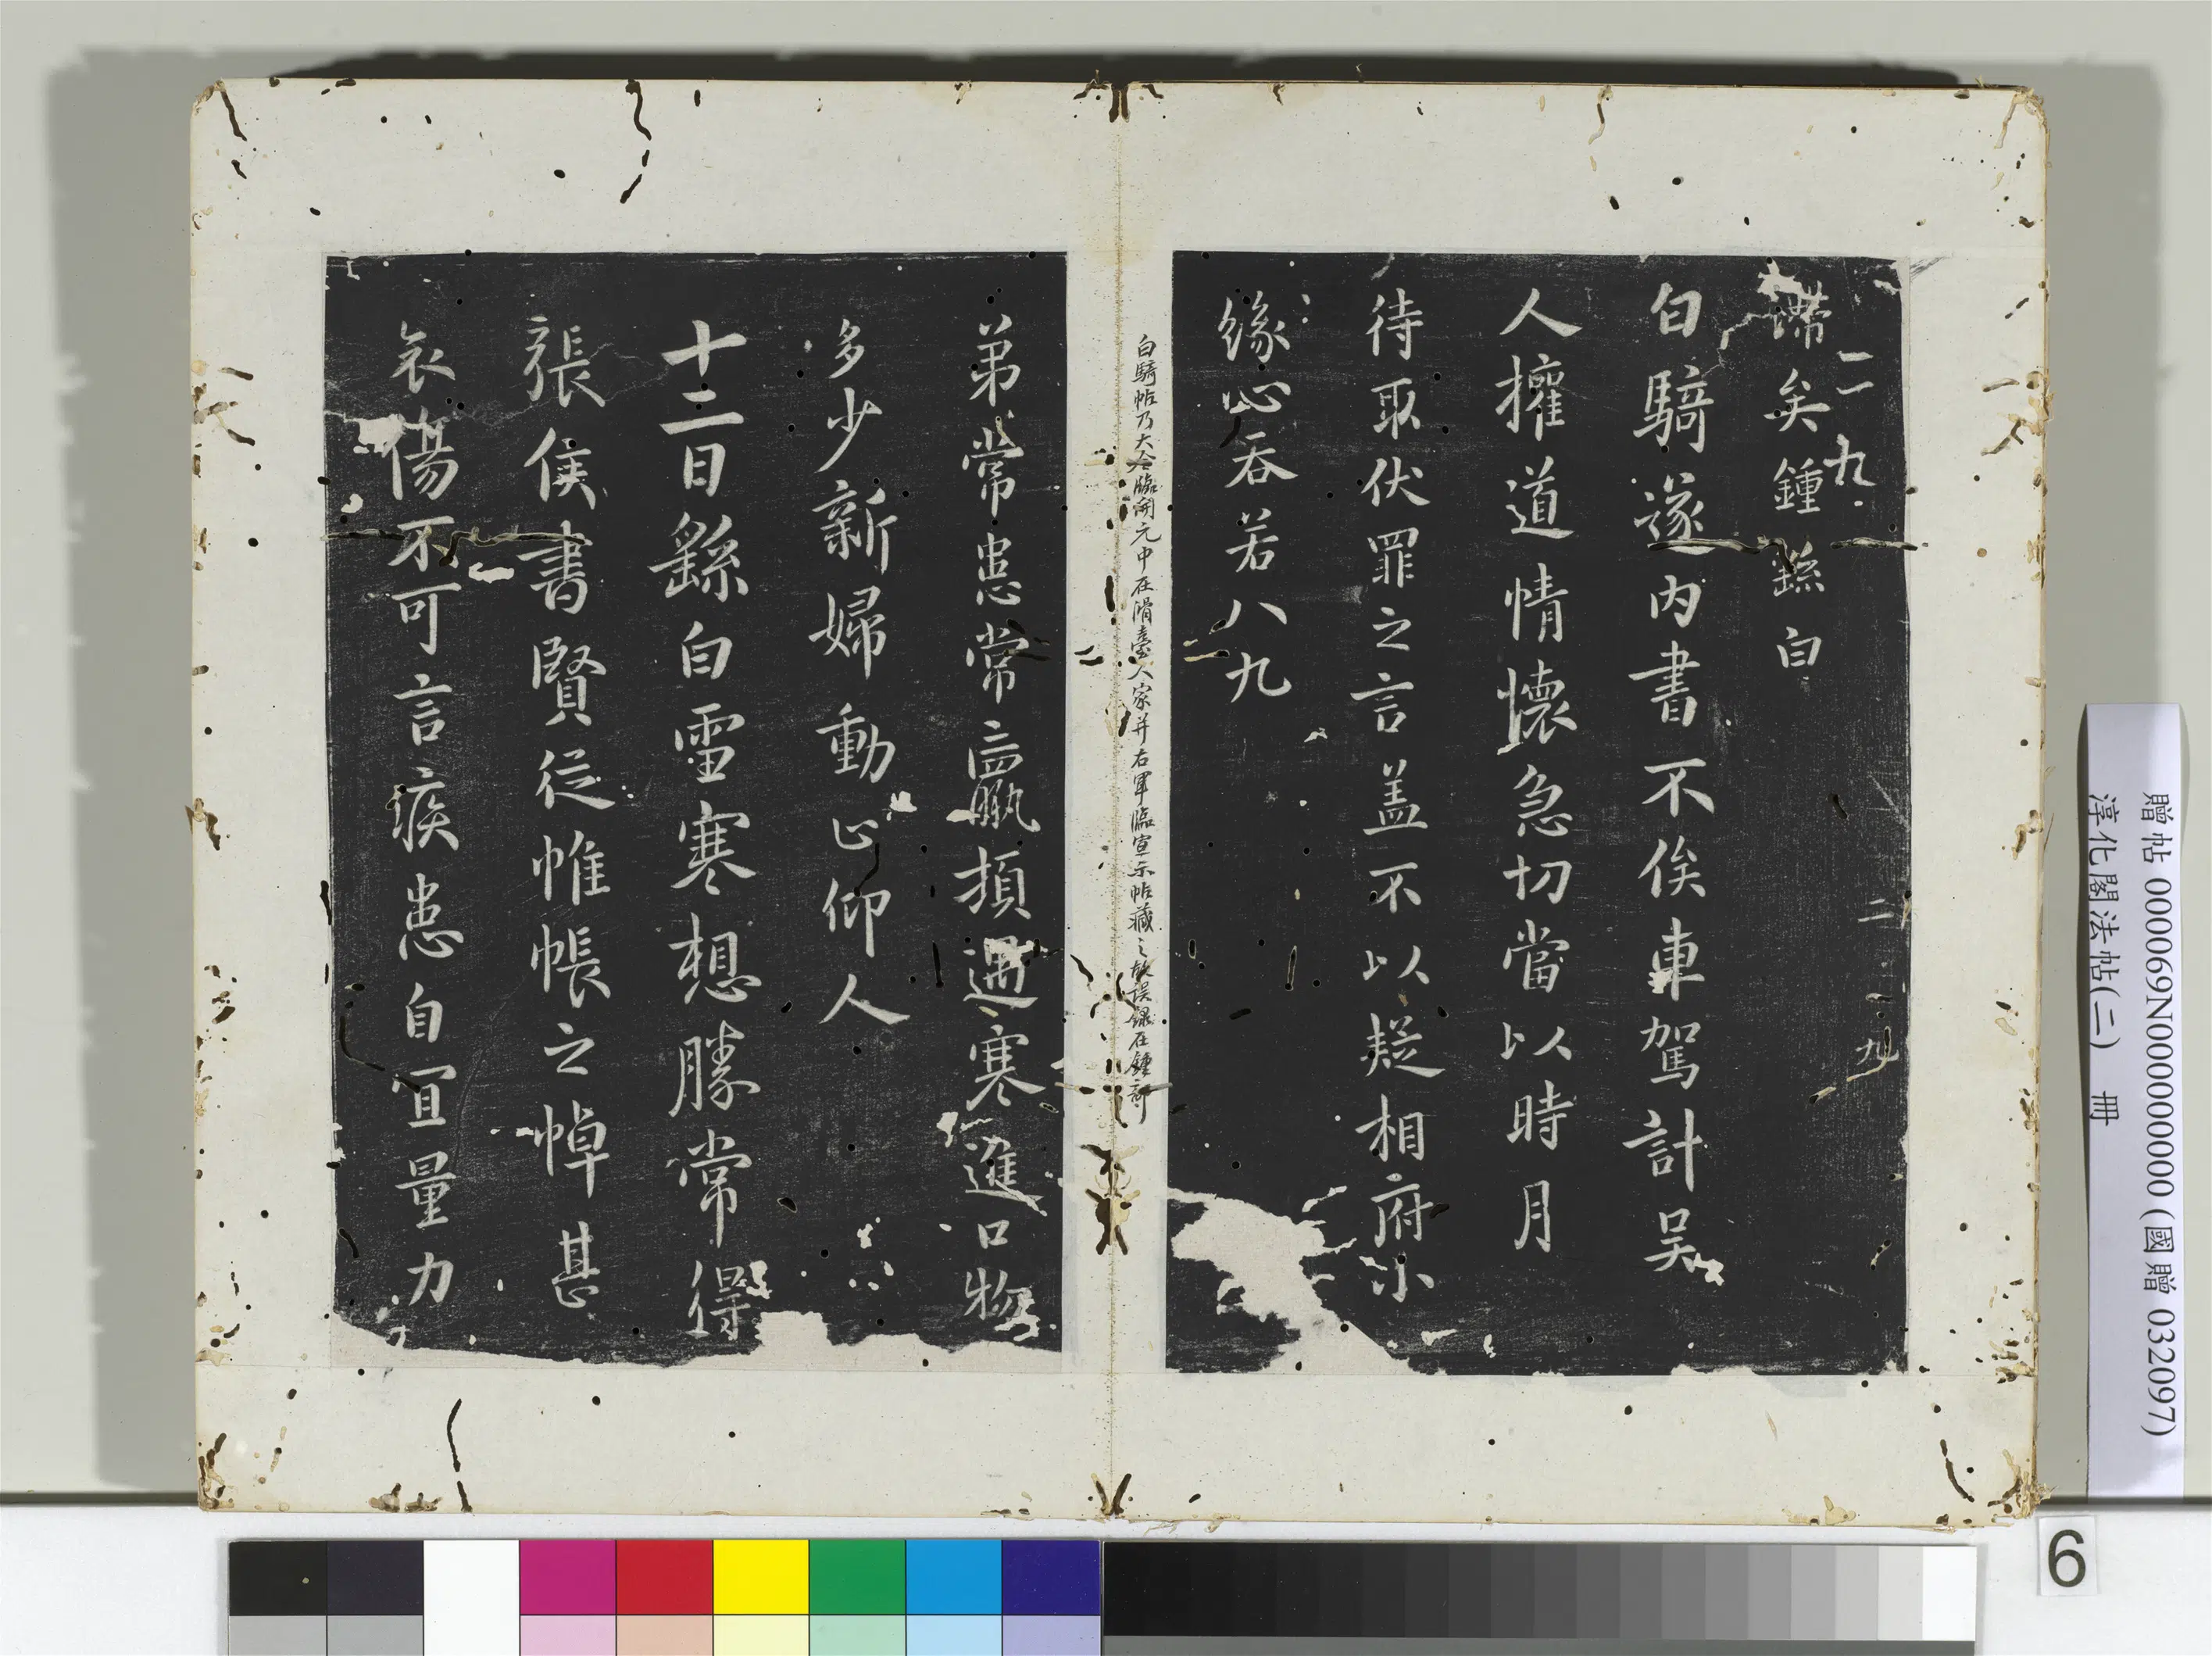 二 九
滯矣鍾繇白
白騎遂內書不俟車駕計吴
人權道情懷急切當以時月
待取伏罪之言盖不以疑相府小
緣心吞若八九
二 九
白騎帖乃大令臨開元中在滑臺人家并右軍臨宣示帖藏之故误録在鍾部
弟常患常羸頓遇寒進口物
多少新婦動止仰人
十二日繇白雪寒想勝常得
張侯書賢從帷帳之悼甚
哀傷不可言疾患自宜量力
贈帖 0000069N000000000 (國贈 032097)
淳化閣法帖(二) 冊
6